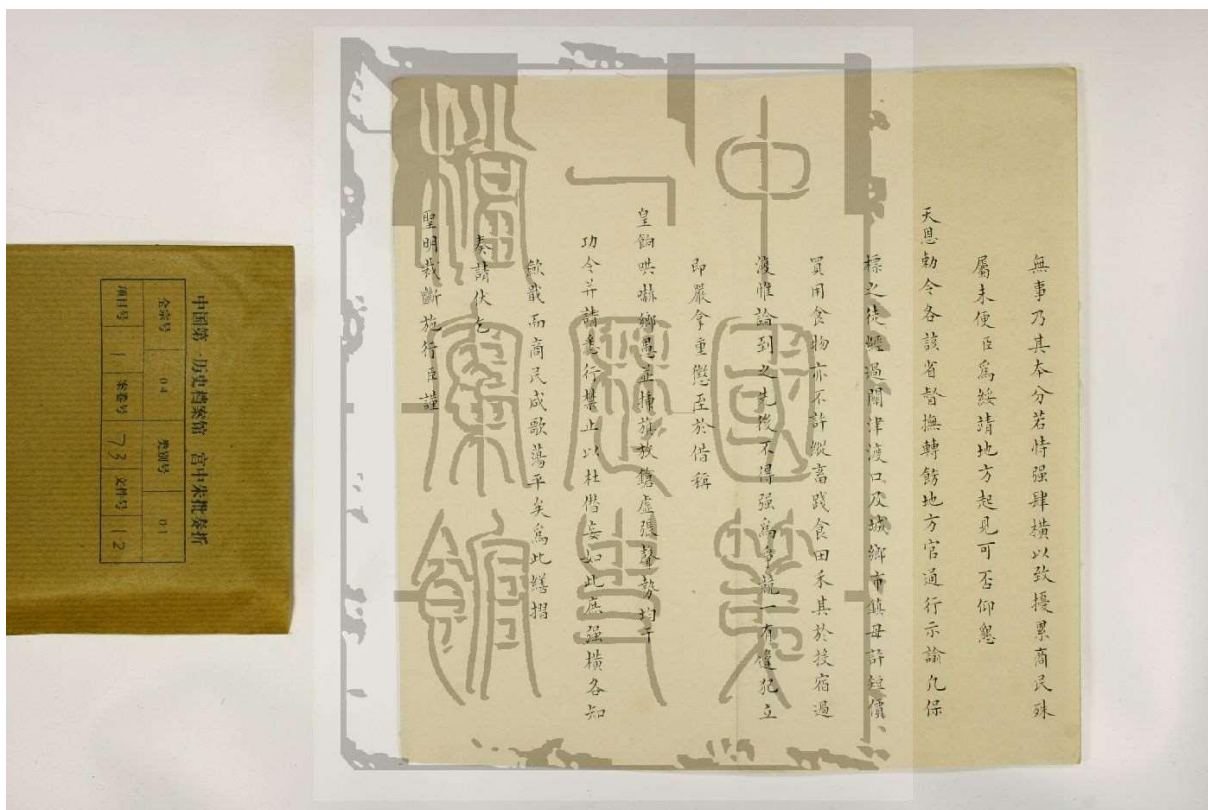 無事乃其本分若恃强肆橫以致擾累商民殊
屬未便臣爲綏靖地方起見可否仰懇
天恩勅令各該省督撫轉飭地方官通行示諭凡保
標之徒經過關津渡口及城鄉市鎮毋許短價
買用食物亦不許縱畜踐食田禾其於投宿過
渡惟論到之先後不得强爲爭競一有違犯立
即嚴拿重懲至於僭稱
皇餉哄嚇鄉愚並揷旂放鎗虛張聲勢均干
功令并請悉行禁止以杜僭妄如此庶强橫各知
歛戢而商民咸歌蕩平矣爲此繕摺
奏請伏乞
聖明裁斷施行臣謹
中国第一历史档案馆 宫中朱批奏折
全宗号 04 类别号 01
项目号 1 案卷号 73 文件号 12
中國第
一歷史
檔案館